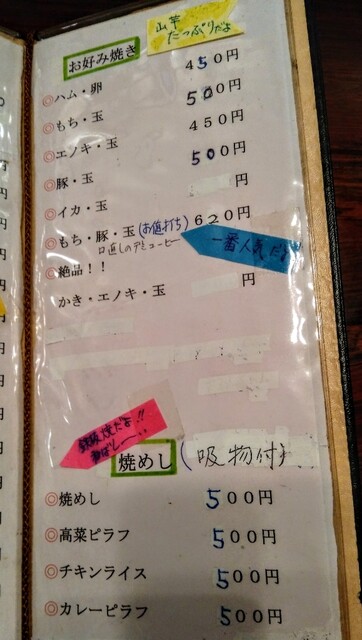 山芋
たっぷりだよ
お好み焼き
◎ハム・卵 450円
◎もち・玉 500円
◎エノキ・玉 450円
◎豚・玉 500円
◎イカ・玉 円
◎もち・豚・玉(お値打ち) 620円
一番人気だよ
◎絶品！！
かき・エノキ・玉 円
鉄板焼だよ!!
焼めし(吸物付)
◎焼めし 500円
◎高菜ピラフ 500円
◎チキンライス 500円
◎カレーピラフ 500円